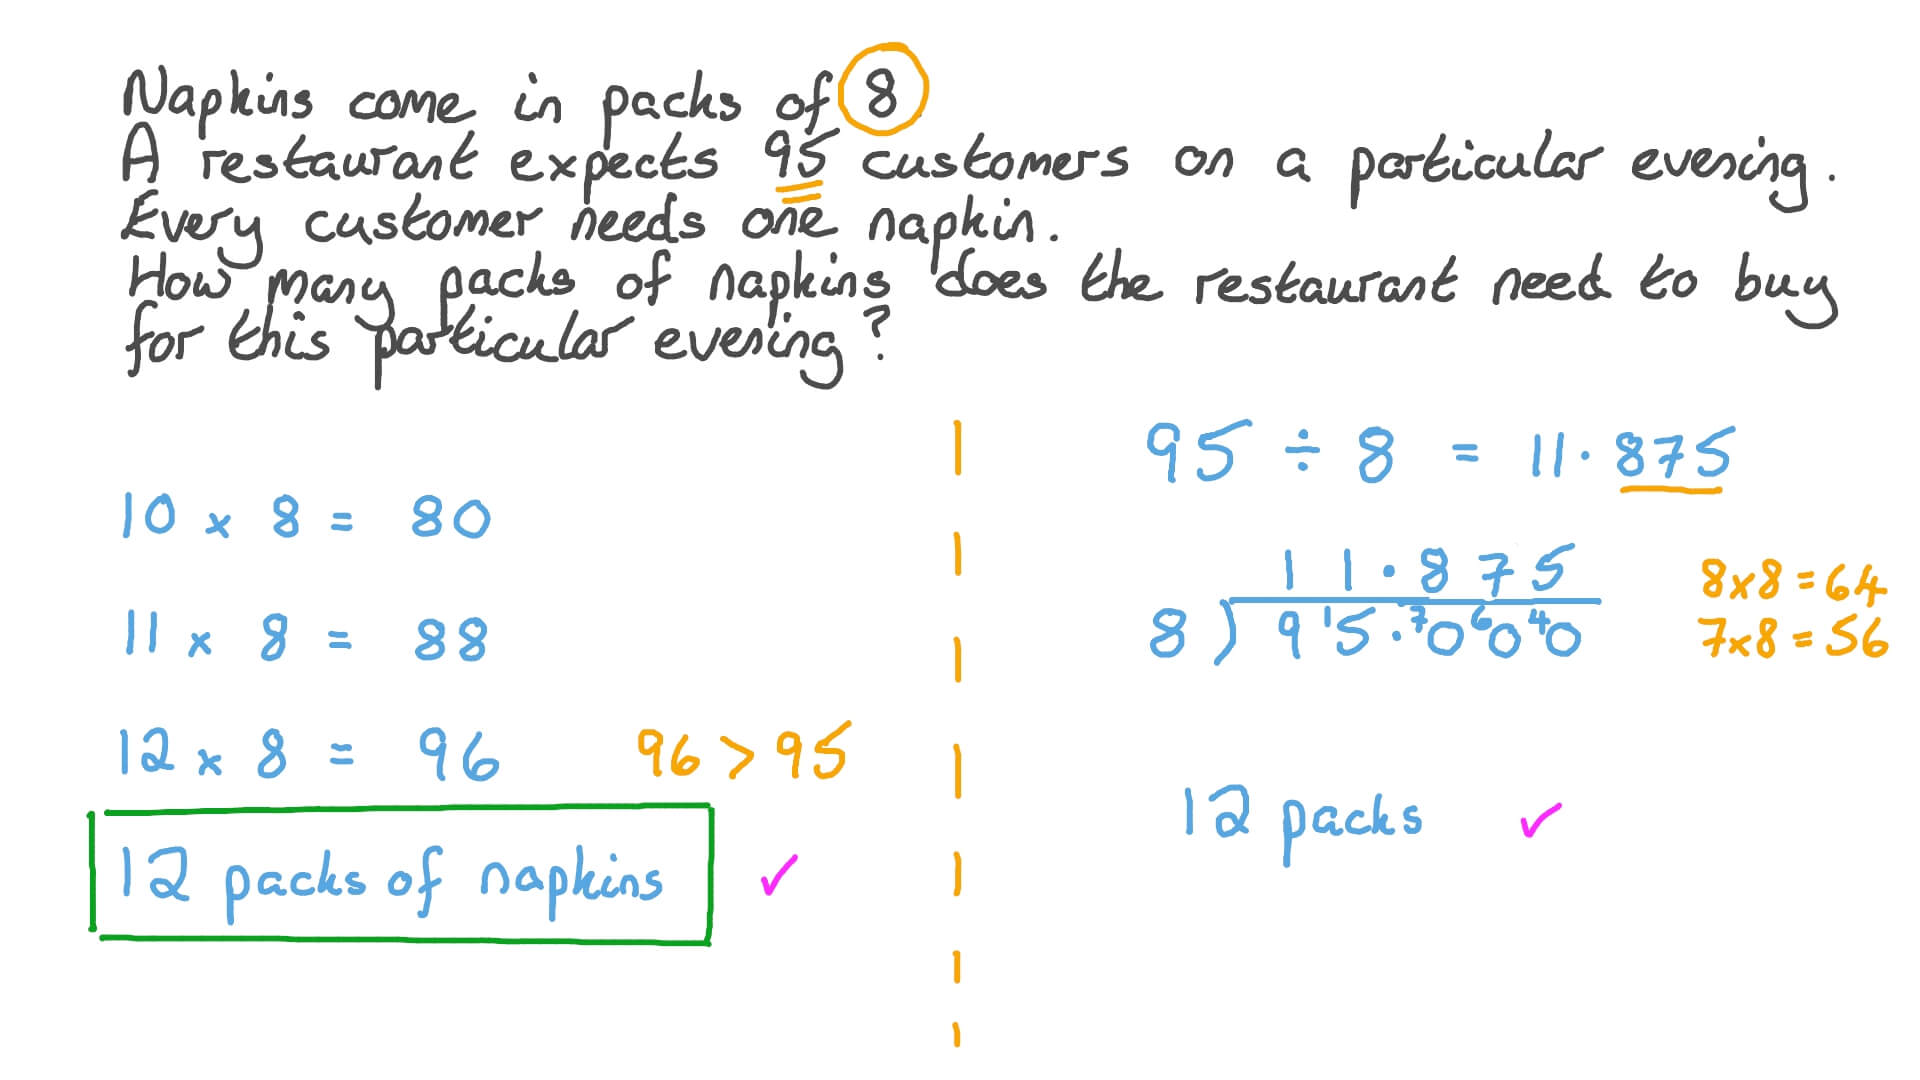 Napkins come in packs of 8
A restaurant expects 95 customers on a particular evening.
Every customer needs one napkin.
How many packs of napkins does the restaurant need to buy
for this particular evening?
10 × 8 = 80
11 × 8 = 88
12 × 8 = 96 96 > 95
12 packs of napkins ✓
95 ÷ 8 = 11.875
11.875
8) 9 ¹5.⁷0⁶0⁴0
8×8=64
7×8=56
12 packs ✓